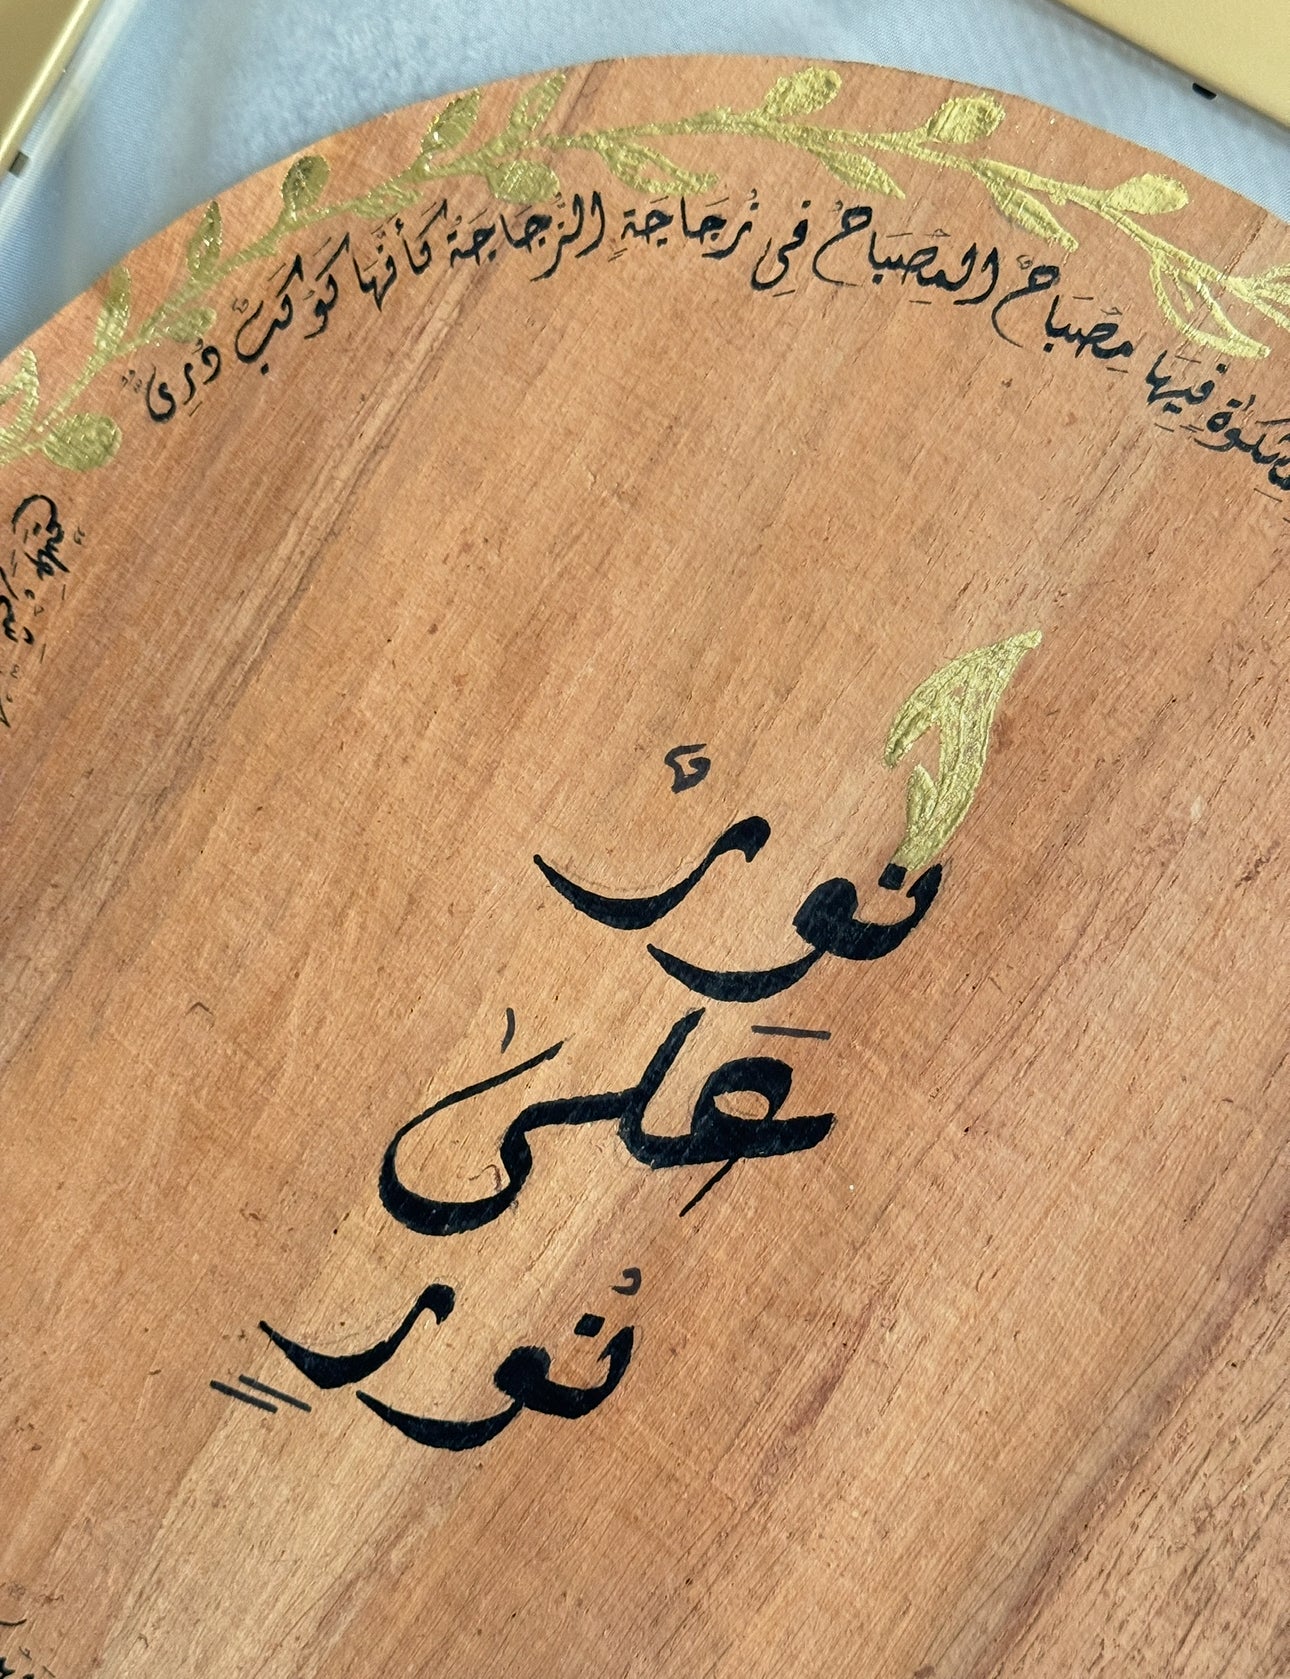 كَمِشْكَوٰةٍ فِيهَا مِصْبَاحٌ الْمِصْبَاحُ فِي زُجَاجَةٍ الزُّجَاجَةُ كَأَنَّهَا كَوْكَبٌ دُرِّيٌّ
نورٌ
عَلىٰ
نُورٍ